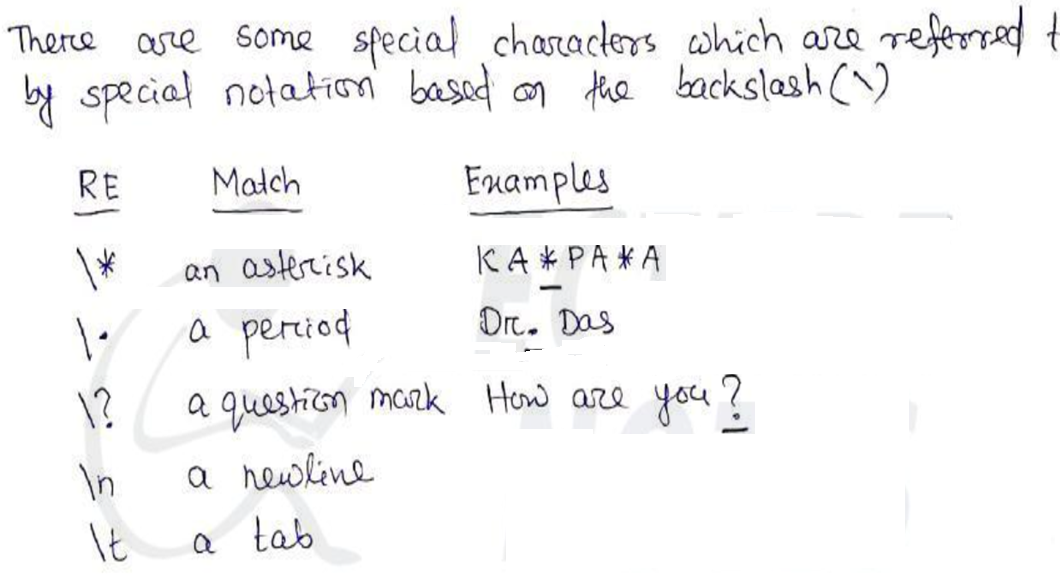 There are some special characters which are referred t
by special notation based on the backslash (\)
RE Match Examples
\* an asterisk KA*PA*A
\. a period Dr. Das
\? a question mark How are you?
\n a newline
\t a tab